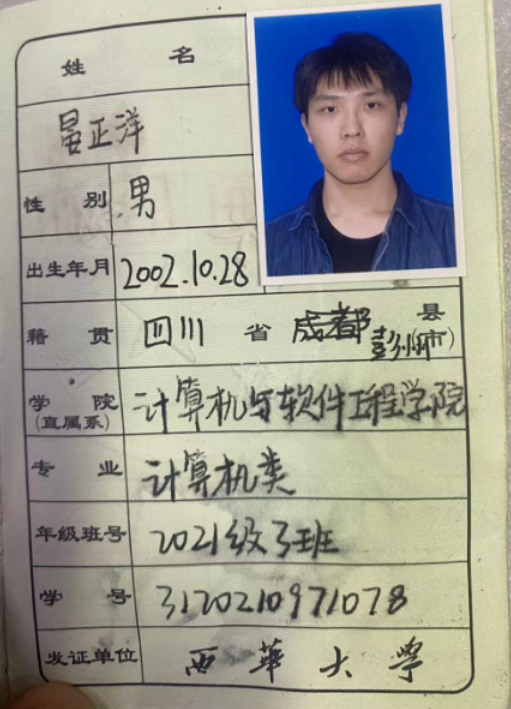 姓名
晏正洋
性别 男
出生年月 2002.10.28
籍贯 四川 省 成都 彭州 县(市)
学院(直属系) 计算机与软件工程学院
专业 计算机类
年级班号 2021级3班
学号 3120210971078
发证单位 西华大学